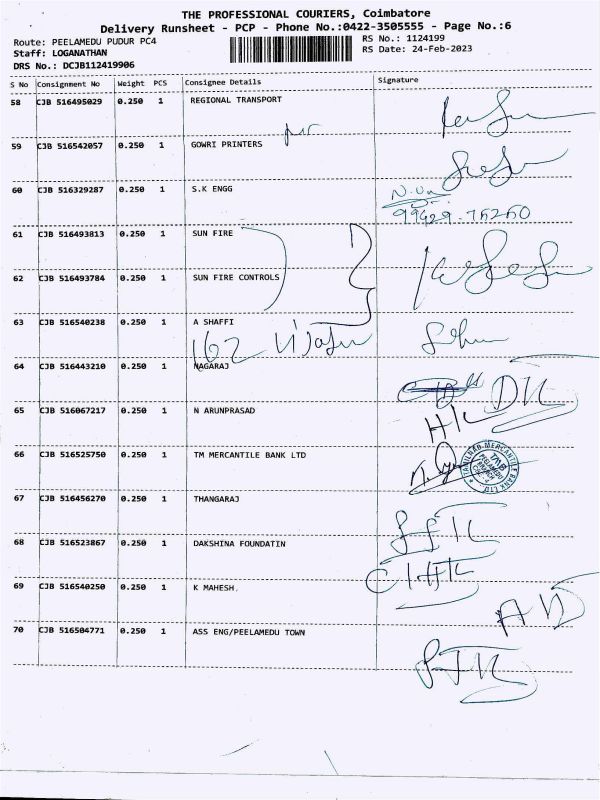 THE PROFESSIONAL COURIERS, Coimbatore
Delivery Runsheet - PCP - Phone No.:0422-3505555 - Page No.:6
Route: PEELAMEDU PUDUR PC4
RS No.: 1124199
Staff: LOGANATHAN
RS Date: 24-Feb-2023
DRS No.: DCJB112419906
S No Consignment No Weight PCS Consignee Details Signature
58 CJB 516495029 0.250 1 REGIONAL TRANSPORT
59 CJB 516542057 0.250 1 GOWRI PRINTERS
60 CJB 516329287 0.250 1 S.K ENGG
61 CJB 516493813 0.250 1 SUN FIRE
62 CJB 516493784 0.250 1 SUN FIRE CONTROLS
63 CJB 516540238 0.250 1 A SHAFFI
162
64 CJB 516443210 0.250 1 NAGARAJ
65 CJB 516067217 0.250 1 N ARUNPRASAD
66 CJB 516525750 0.250 1 TM MERCANTILE BANK LTD
67 CJB 516456270 0.250 1 THANGARAJ
68 CJB 516523867 0.250 1 DAKSHINA FOUNDATIN
69 CJB 516540250 0.250 1 K MAHESH.
70 CJB 516504771 0.250 1 ASS ENG/PEELAMEDU TOWN